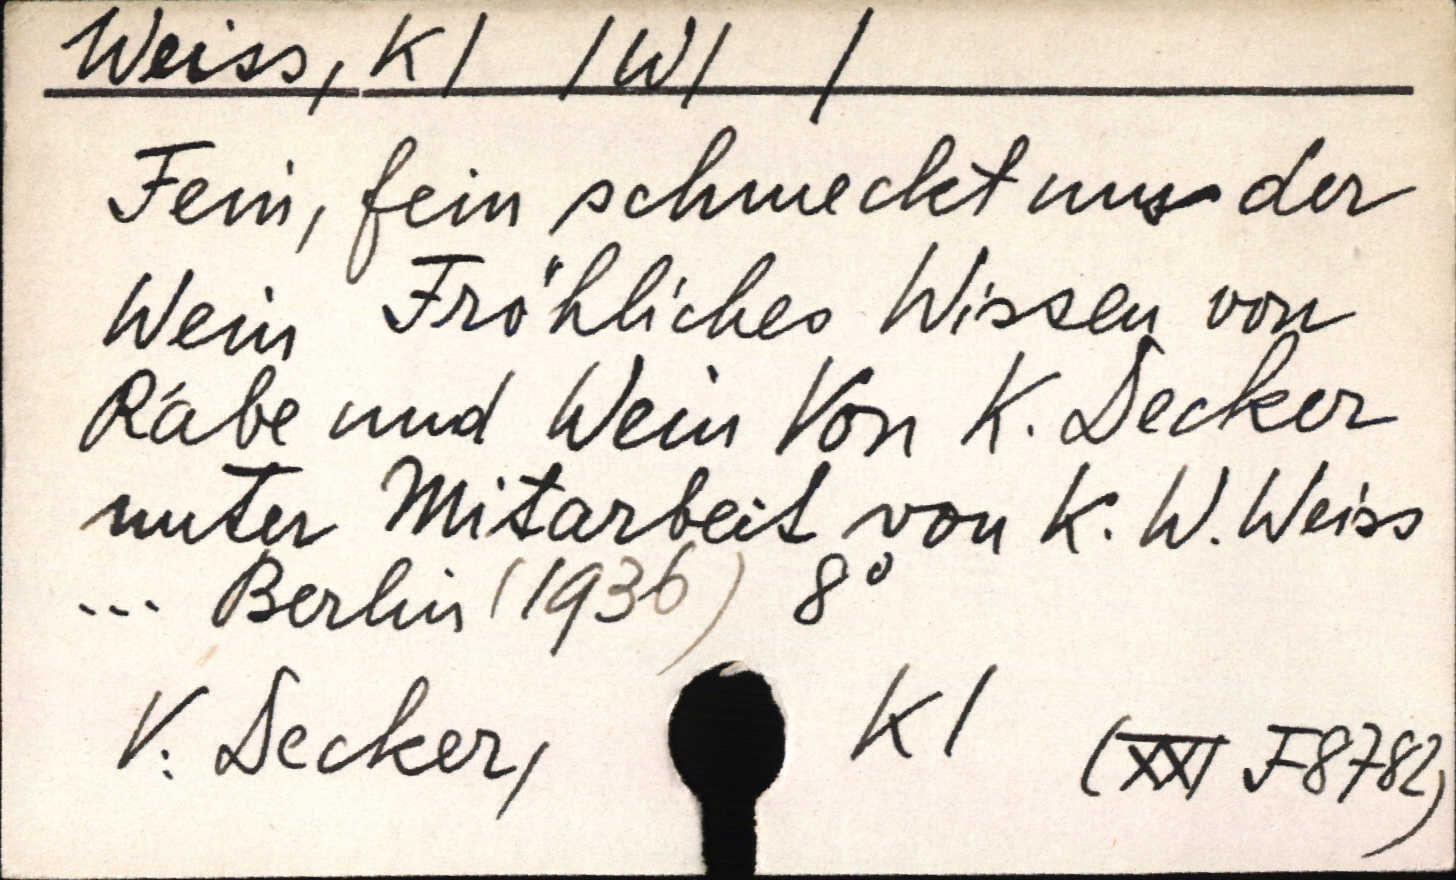 Weiss, K/ /W/ /
Fein, fein schmeckt uns der
Wein Fröhliches Wissen von
Räbe und Wein Von K. Decker
unter Mitarbeit von K. W. Weiss
... Berlin (1936) 8°
V: Decker, K/
(XXI F8782)